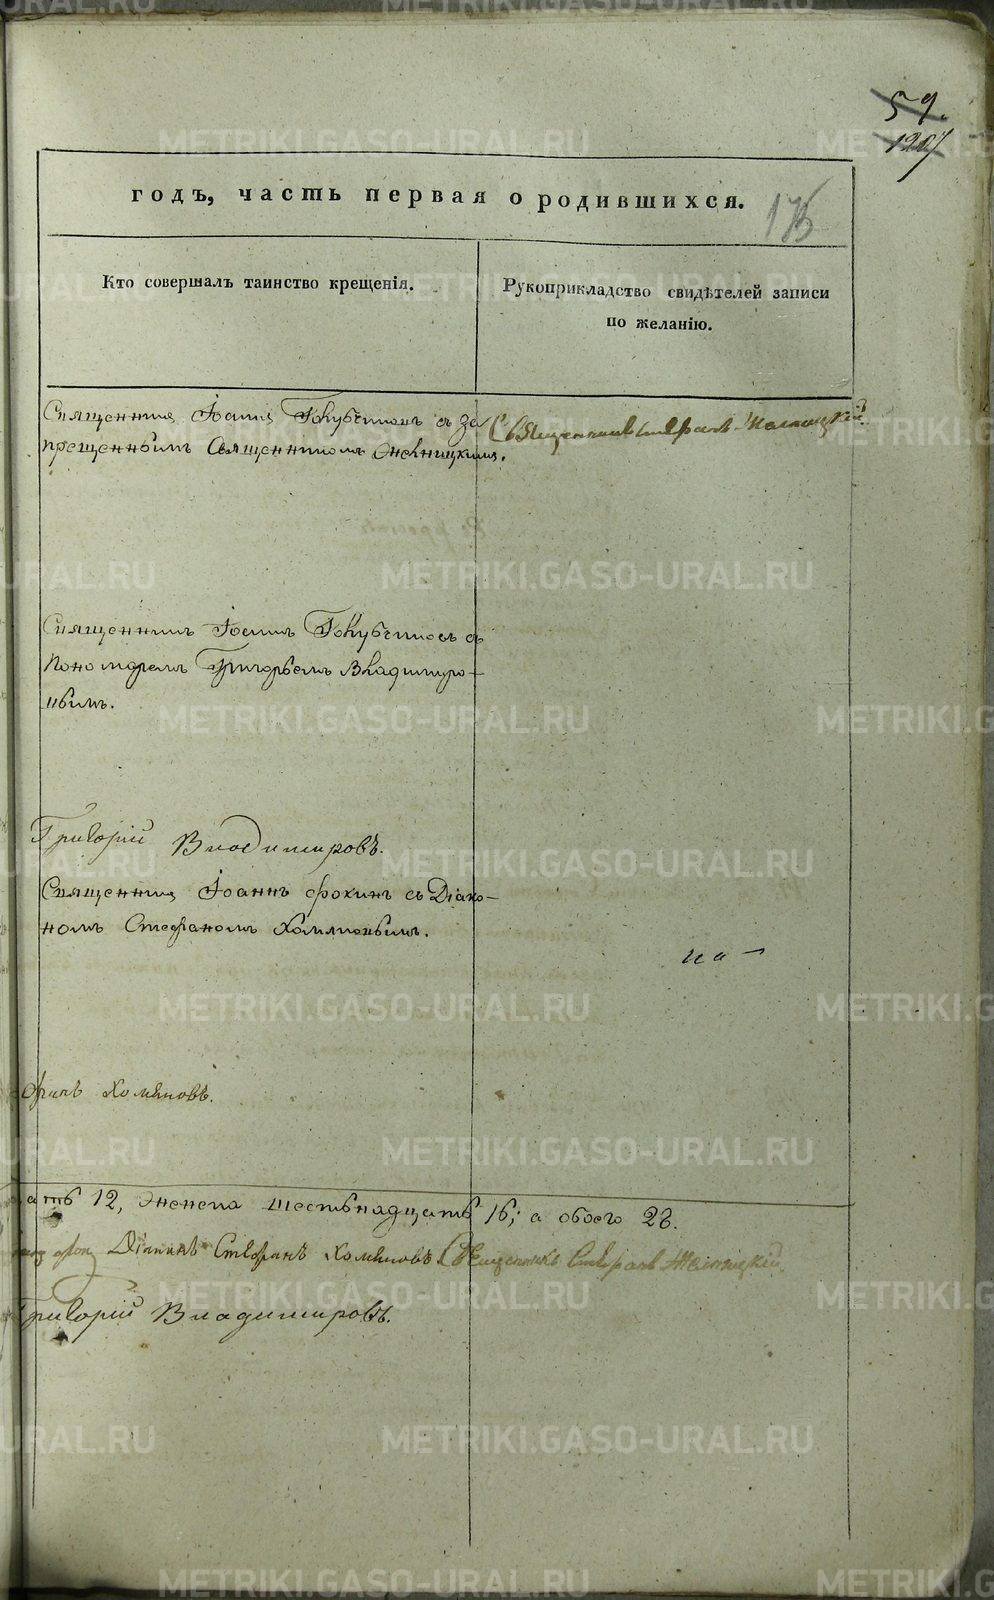 59.
1207
годъ, часть первая о родившихся.
175
Кто совершалъ таинство крещенія.
Рукоприкладство свидѣтелей записи
по желанію.
Священник Іоанн Голубчиковъ съ за
прещеннымъ Священникомъ
Священникъ Стефанъ
Священникъ Іоаннъ Голубчиковъ съ
Пономаремъ Григорьемъ Владимиро-
вымъ.
Григорій Владимировъ.
Священник Іоаннъ Фокинъ съ Діако-
номъ Стефаномъ Хомяковымъ.
на
Хомяковъ.
ать 12, Женска шестьнадцать 16; а обоего 28.
Діаконъ Стефанъ Хомяковъ. Священникъ Стефанъ
Григорій Владимировъ.
METRIKI.GASO-URAL.RU